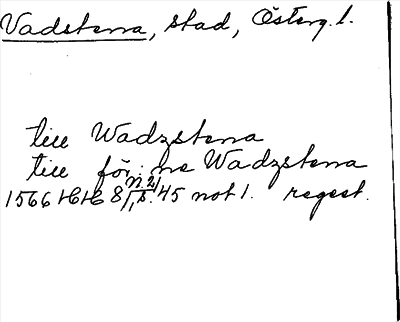 Vadstena, stad, Österg. l.
till Wadzstena
till för:ne Wadzstena
1566 HH 8 n. 21 s. 45 not 1. regest.